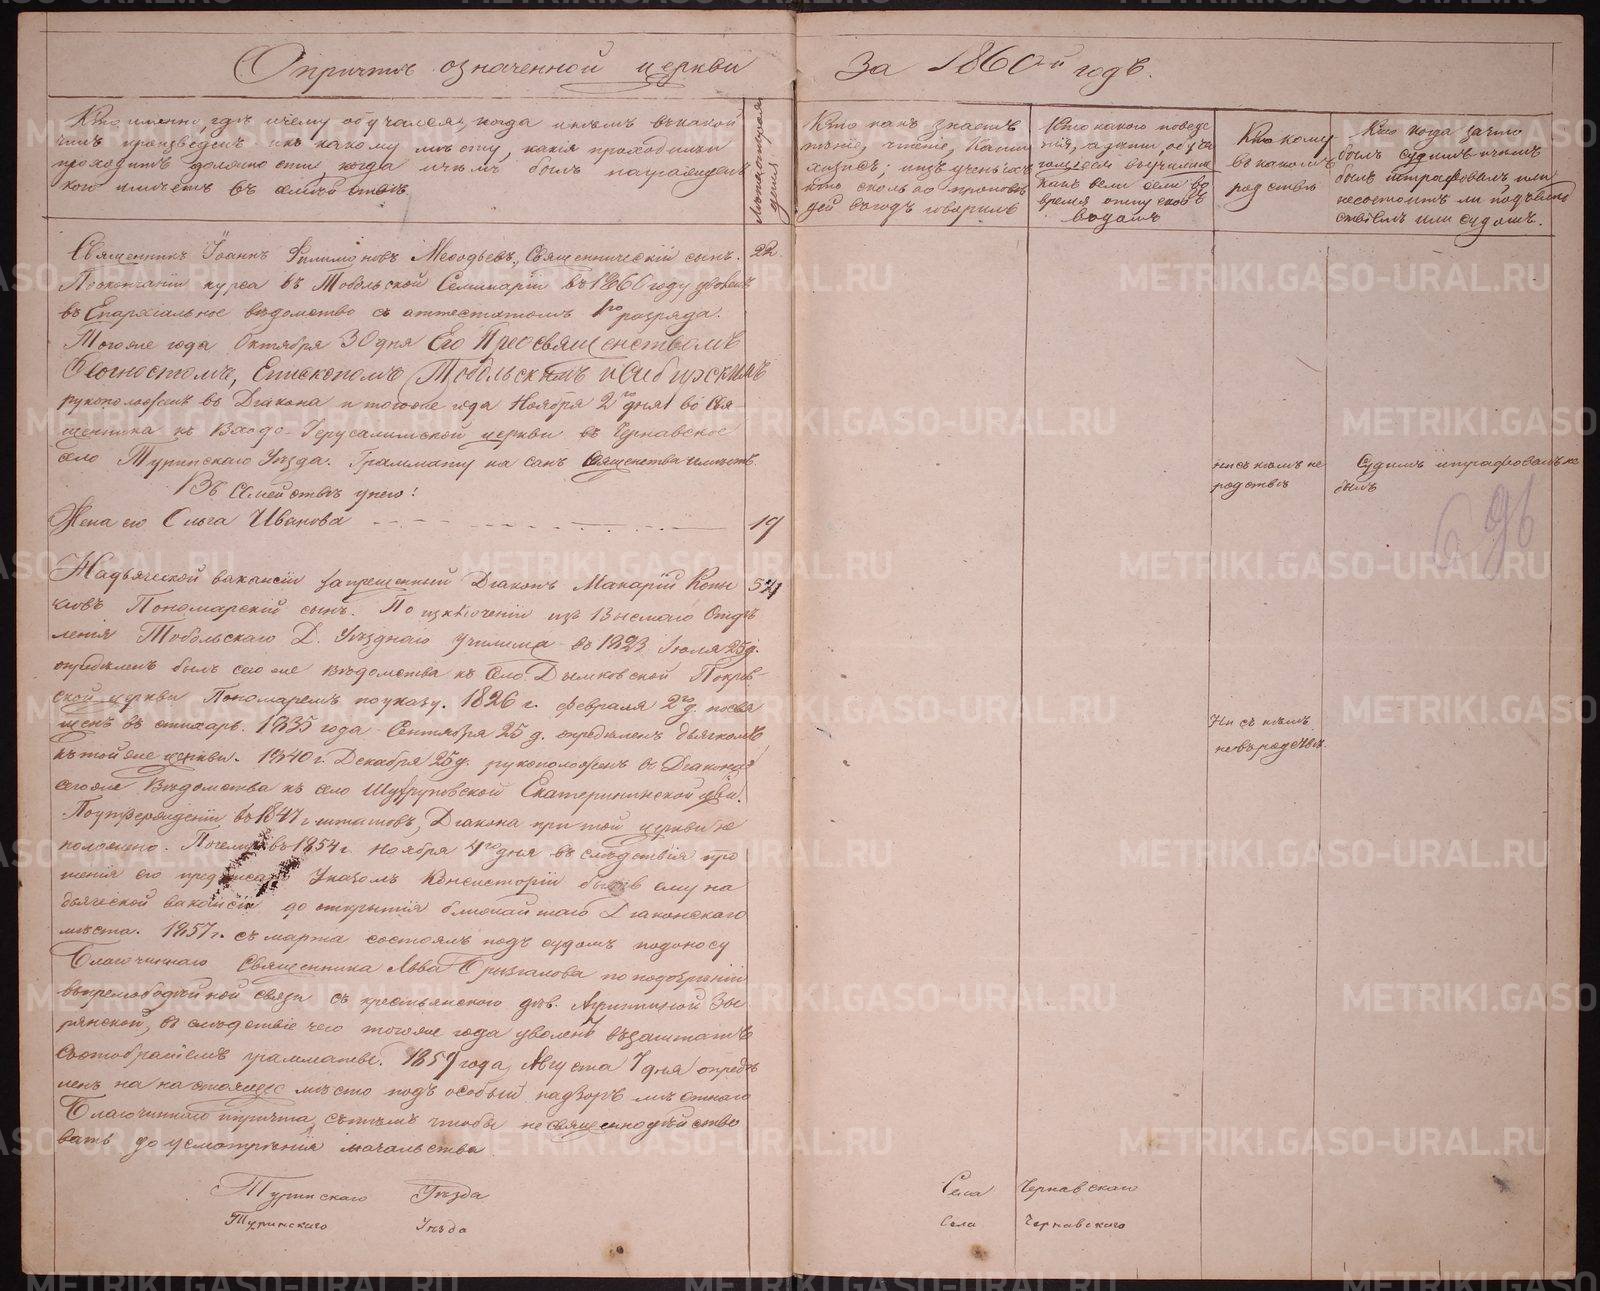 О причтѣ означенной церкви
За 1860й годъ.
Кто именно, гдѣ и чему обучался, когда и кѣмъ въ какой
чинъ произведенъ и къ какому мѣсту, какія проходилъ и
проходитъ должности, когда и чѣмъ былъ награжденъ
кого имѣетъ въ семействѣ
Кто какъ знаетъ
пѣніе, чтеніе, Катихизисъ; изъ ученыхъ
кто сколько проповѣ
дей въ годъ говорилъ
Кто какого поведе
нія
какъ вели себя во
время отпусковъ
Кто кому
въ какомъ
родствѣ
Кто когда за что
былъ судимъ и чѣмъ
былъ штрафованъ или
несостоитъ ли подъ
слѣдствіемъ или судомъ.
Священникъ Іоаннъ Филимоновъ Меѳодьевъ, Священническій сынъ. 22.
По окончаніи курса въ Тобольской Семинаріи въ 1860 году уволенъ
въ Епархіальное вѣдомство съ аттестатомъ 1го разряда.
Того же года Октября 30 дня Его Преосвященствомъ
Ѳеогностомъ, Епископомъ Тобольскимъ и Сибирскимъ
рукоположенъ во Діакона и того же года Ноября 2го дня во Свя
щенника къ Входо-Іерусалимской церкви въ Чернавское
село Туринскаго Уѣзда. Граммату на санъ Священства имѣетъ.
ни съ кѣмъ не
родствѣ
Судимъ и штрафованъ не
былъ
Въ Семействѣ у него:
Жена его Ольга Иванова 19
На дьяческой вакансіи запрещенный Діаконъ Макарій Копы
ловъ Пономарскій сынъ. По изключеніи изъ Высшаго Отдѣ
ленія Тобольскаго Д. Уѣзднаго училища въ 1823 Іюля 25 д.
опредѣленъ былъ сего же вѣдомства въ село Дымковской Покров-
ской церкви Пономаремъ по указу. 1826 г. Февраля 2го д. посвя
щенъ въ стихарь. 1835 года Сентября 25 д. опредѣленъ дьячкомъ
къ той же церкви. 1840 г. Декабря 25 д. рукоположенъ во Діакона
сего же Вѣдомства къ село Шухруповской Екатерининской
По утвержденіи въ 1841 г. штатовъ, Діакона при той церкви не
положено. Почему въ 1854 г. Ноября 4го дня въ слѣдствія про
шенія его предписано Указомъ Консисторіи быть ему на
дьяческой вакансіи до открытія ближайшаго Діаконскаго
мѣста. 1857 г. съ марта состоялъ подъ судомъ по доносу
Благочиннаго Священника Льва Брызгалова по подозрѣнію
въ прелюбодѣйной связи съ крестьянскою дѣв. Зы
рянской, въ слѣдствіе чего того же года уволенъ въ заштатъ
съ отобраніемъ грамматы. 1859 года, Августа 7 дня опредѣ
ленъ на настоящее мѣсто подъ особый надзоръ мѣстнаго
Благочиннаго и причта, съ тѣмъ чтобы не священнодѣйство
вать до усмотрѣнія начальства
Ни съ кѣмъ
не въ родствѣ.
Туринскаго Уѣзда
Села Чернавскаго
Туринскаго Уѣзда
Села Чернавскаго
METRIKI.GASO-URAL.RU